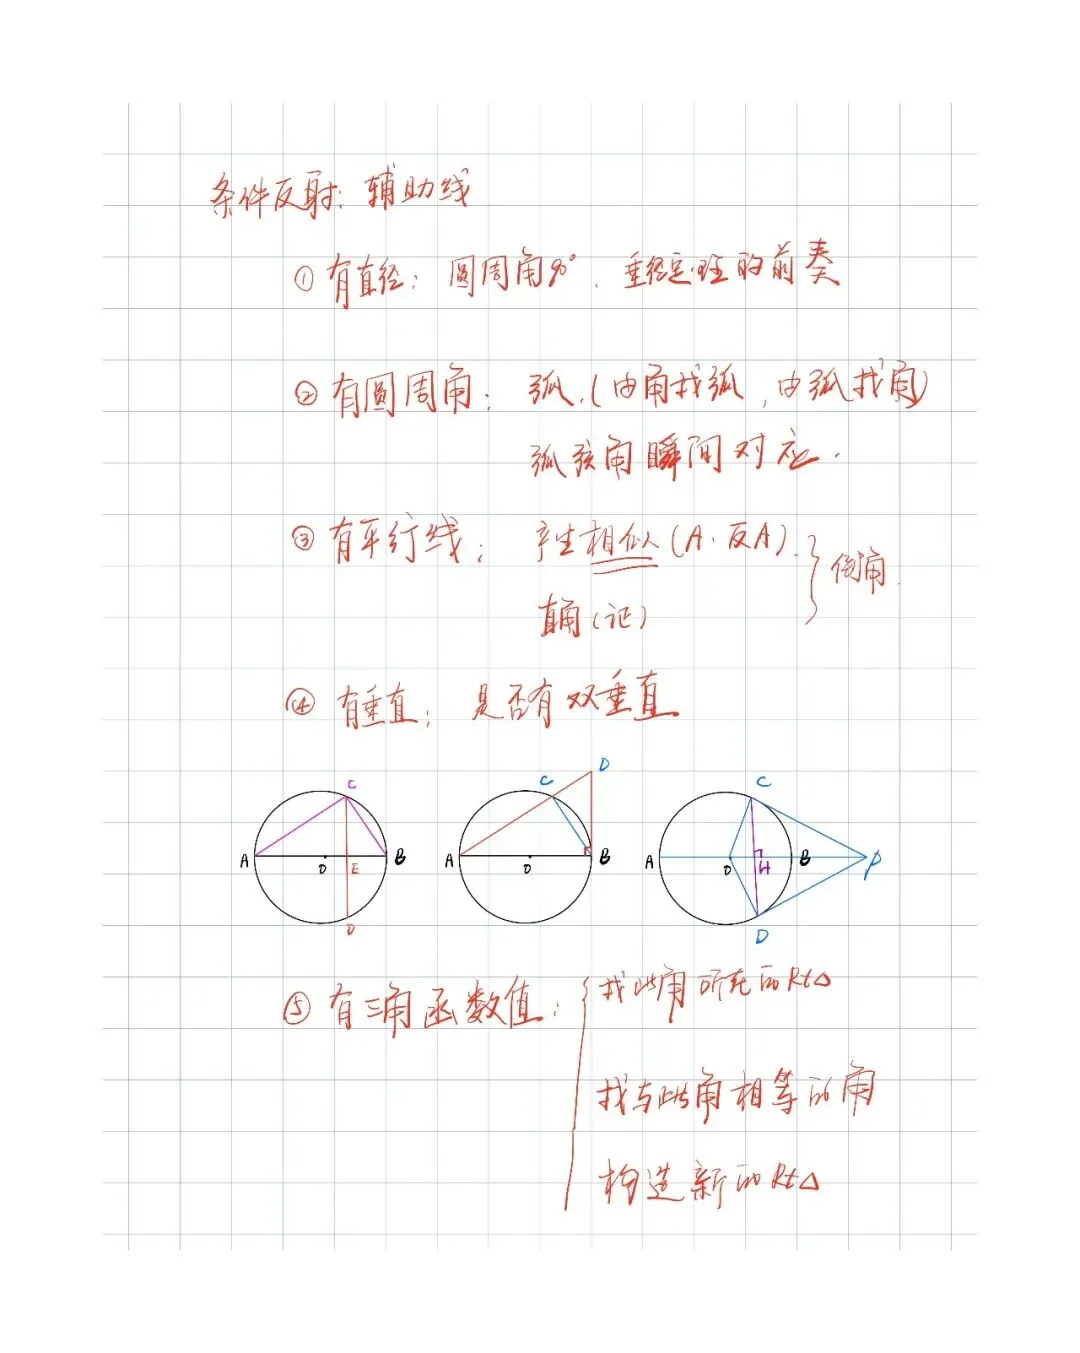 条件反射：辅助线
① 有直径：圆周角90°、垂径定理的前奏
② 有圆周角：弧.(由角找弧,由弧找角)
弧弦角瞬间对应.
③ 有平行线：产生相似(A.反A).
倒角.
直角(证)
④ 有垂直：是否有双垂直
C
A O E B
D
D
C
A O B
C
A O H B P
D
⑤ 有三角函数值：找此角所在的Rt△
找与此角相等的角
构造新的Rt△